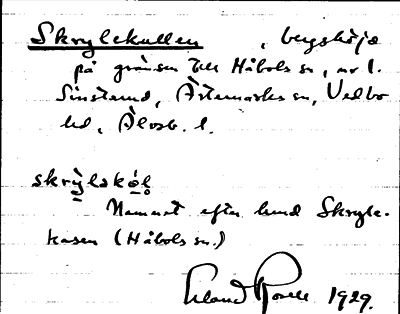 Skrylekullen , bergshöjd
på gränsen till Håbols sn, nv l.
Sinsterud, Ärtemarks sn, Vedbo
hd, Älvsb. l.
skrỳlskól̥
Namnet efter hemd Skryle-
kasen (Håbols sn.)
Erland Rosell 1929.